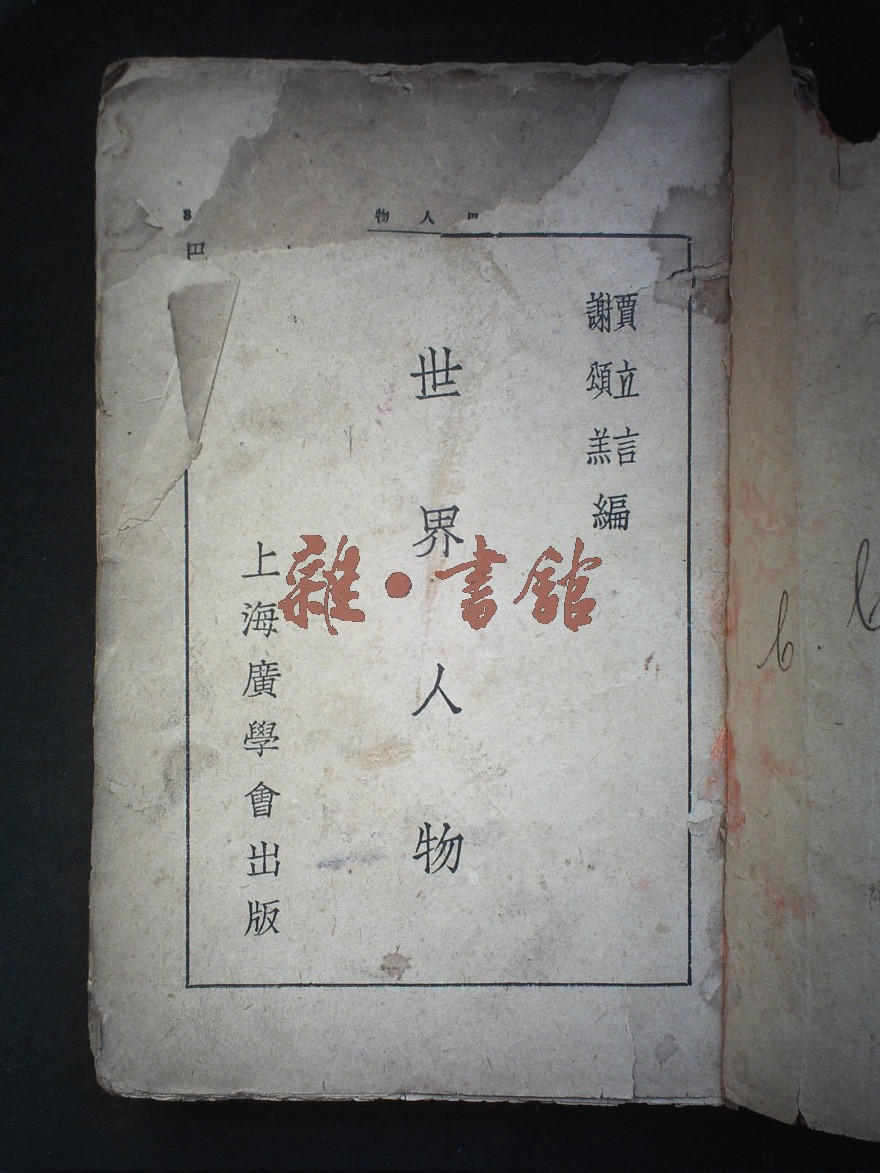 人物
賈立言
謝頌羔編
世界人物
上海廣學會出版
雜·書館